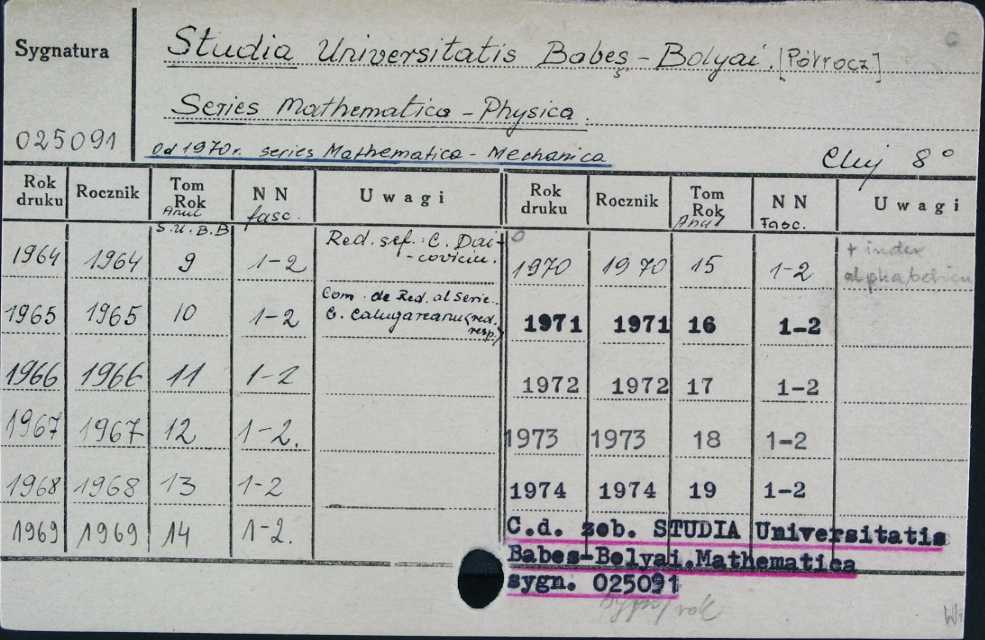 Sygnatura
Studia Universitatis Babeş-Bolyai. [Półrocz]
Series Mathematica - Physica.
025091
od 1970 r. series Mathematica - Mechanica
Cluj 8°
Rok druku Rocznik Tom Rok Anul S.U.B.B NN fasc. Uwagi Rok druku Rocznik Tom Rok Anul NN Fasc. Uwagi
1964 1964 9 1-2 Red. sef: C. Dai-
coviciu.
1970 1970 15 1-2 + index
1965 1965 10 1-2 Com. de Red. al serie.
G. Calugareanu (red.
resp.)
1971 1971 16 1-2
1966 1966 11 1-2 1972 1972 17 1-2
1967 1967 12 1-2. 1973 1973 18 1-2
1968 1968 13 1-2 1974 1974 19 1-2
1969 1969 14 1-2.
C.d. zob. STUDIA Universitatis
Babes-Bolyai.Mathematica
sygn. 025091
rok